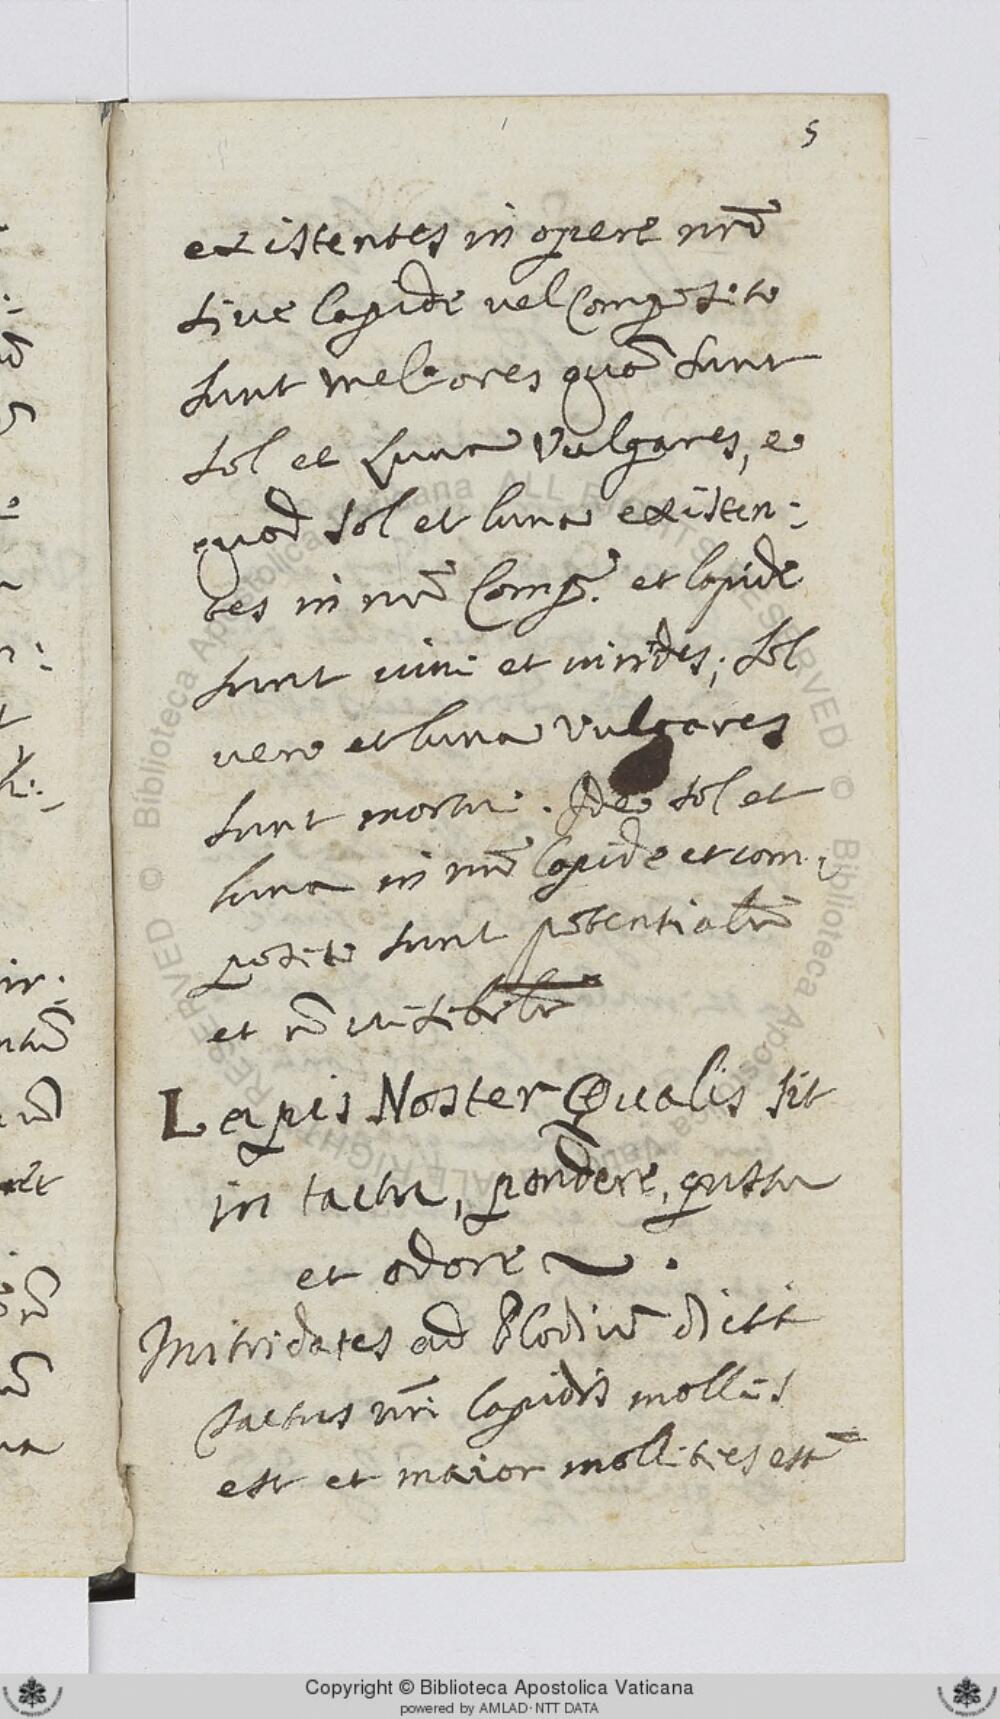 5
existentes in opere nr̃o
sive lapide vel Composito
sunt meliores quã sunt
sol et Luna Vulgares, eo
quod sol et luna existen:
tes in nr̃o Comp.º et lapide
sunt uiui et uirides; sol
uero et luna Vulgares
sunt mortui. Ideo sol et
luna in nr̃o lapide et com:
posito sunt potentialr̃
et nõ uisibilr̃
Lapis Noster Qualis sit
in tactu, pondere, gustu
et odore
Mitridates ad Blodiũ dicit
tactus nr̃i lapidis mollis
est et maior mollities est
Copyright © Biblioteca Apostolica Vaticana
powered by AMLAD·NTT DATA